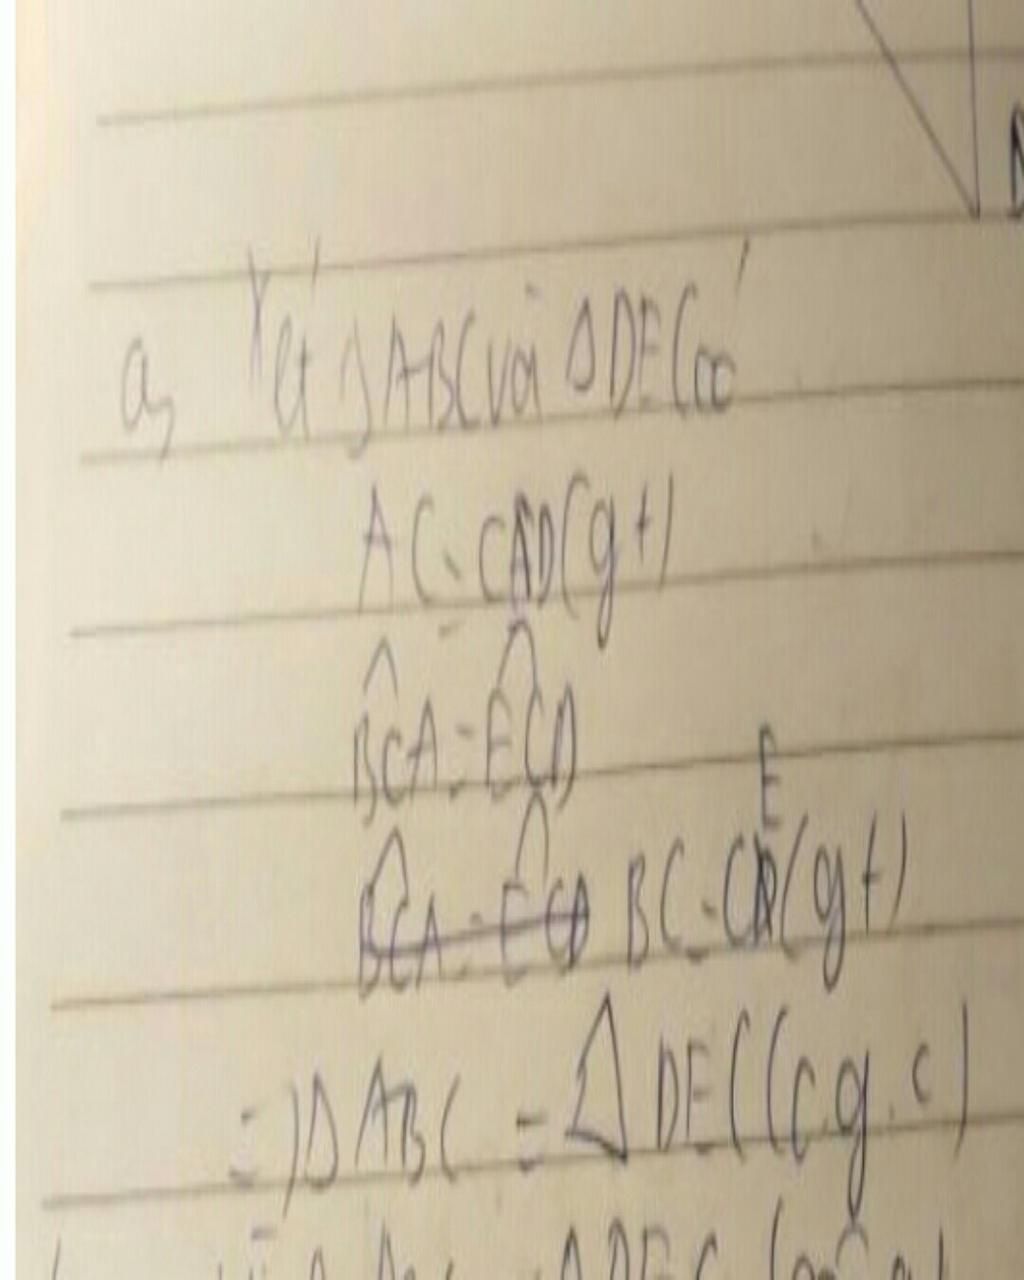 D
a, Xét ΔABC và ΔDEC có
AC = CD (gt)
BCA = ECD
BCA = ECD BC = CE (gt)
=) ΔABC = ΔDEC (c.g.c)
ΔDEC